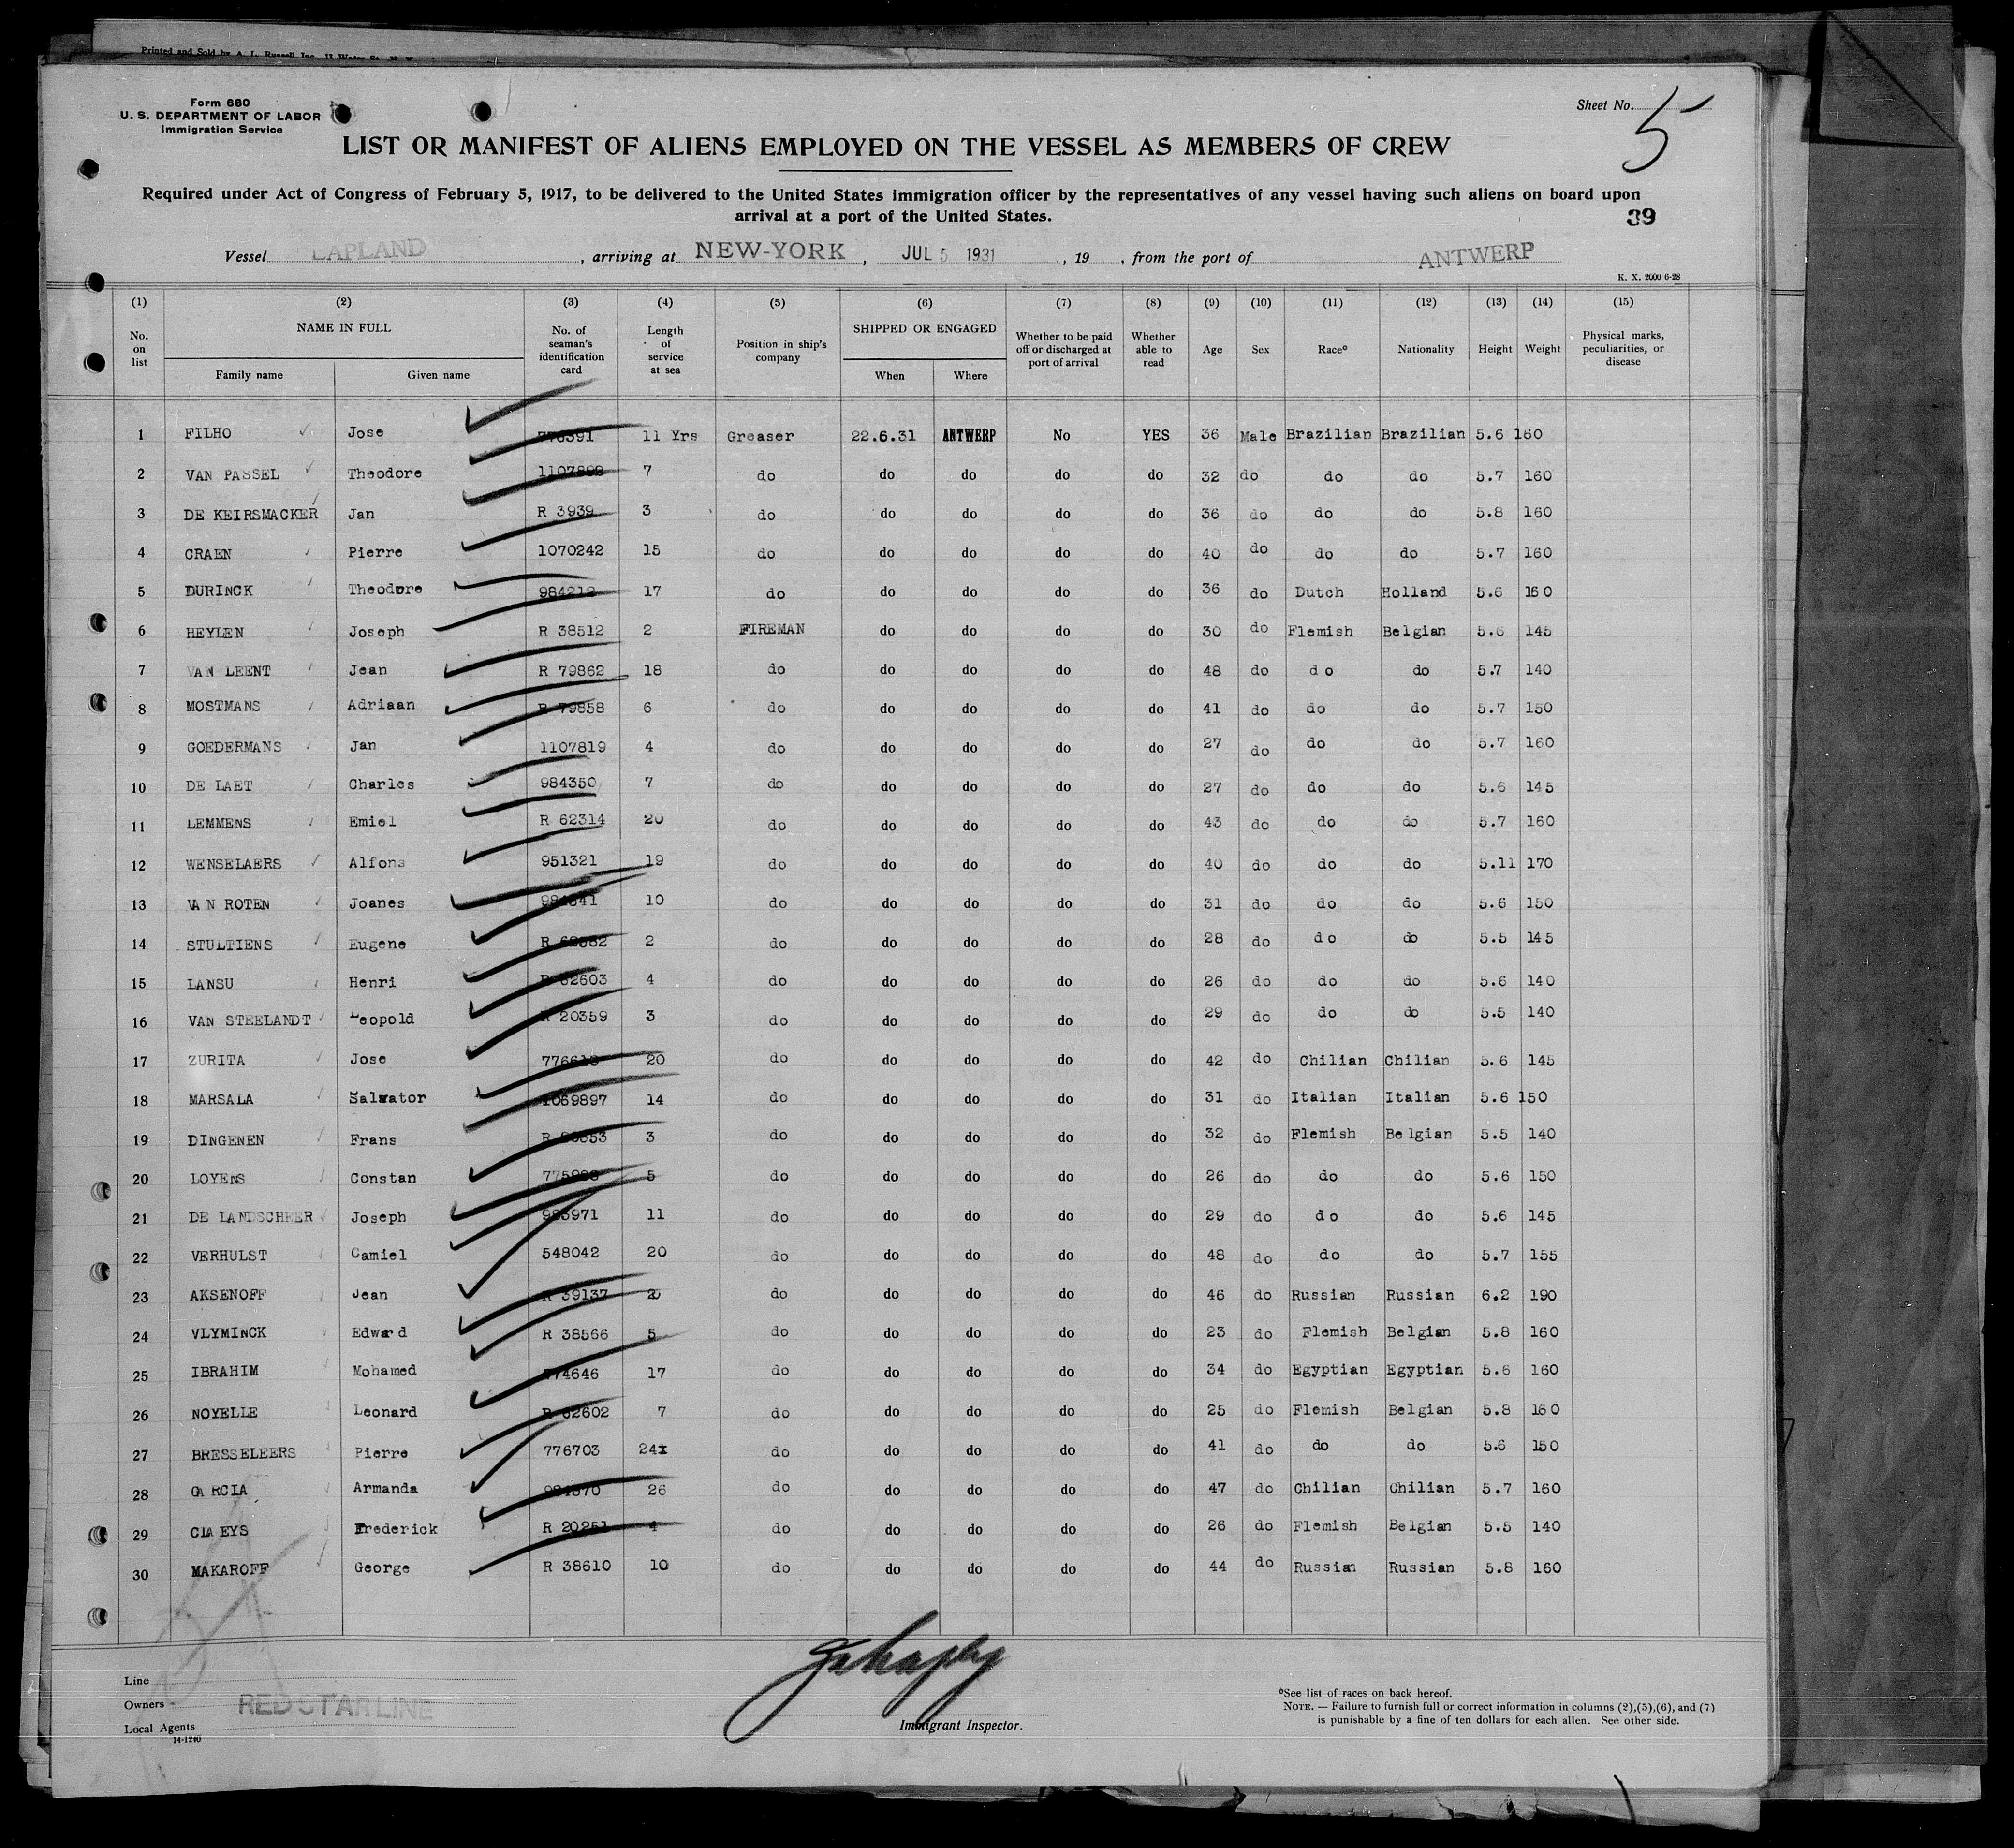 Printed and Sold by A. L. Russell Inc. 13 Water St. N. Y.
Form 680
U. S. DEPARTMENT OF LABOR
Immigration Service
Sheet No. 5
LIST OR MANIFEST OF ALIENS EMPLOYED ON THE VESSEL AS MEMBERS OF CREW
Required under Act of Congress of February 5, 1917, to be delivered to the United States immigration officer by the representatives of any vessel having such aliens on board upon
arrival at a port of the United States.
39
Vessel LAPLAND, arriving at NEW-YORK, JUL 5 1931, 19 , from the port of ANTWERP
K. X. 2000 6-28
(1) (2) (3) (4) (5) (6) (7) (8) (9) (10) (11) (12) (13) (14) (15)
No. on list NAME IN FULL Family name Given name No. of seaman's identification card Length of service at sea Position in ship's company SHIPPED OR ENGAGED When Where Whether to be paid off or discharged at port of arrival Whether able to read Age Sex Race* Nationality Height Weight Physical marks, peculiarities, or disease
1 FILHO Jose 11 Yrs Greaser 22.6.31 ANTWERP No YES 36 Male Brazilian Brazilian 5.6 160
2 VAN PASSEL Theodore 7 do do do do do 32 do do do 5.7 160
3 DE KEIRSMACKER Jan R 3939 3 do do do do do 36 do do do 5.8 160
4 CRAEN Pierre 1070242 15 do do do do do 40 do do do 5.7 160
5 DURINCK Theodore 984212 17 do do do do do 36 do Dutch Holland 5.6 160
6 HEYLEN Joseph R 38512 2 FIREMAN do do do do 30 do Flemish Belgian 5.6 145
7 VAN LEENT Jean R 79862 18 do do do do do 48 do do do 5.7 140
8 MOSTMANS Adriaan R 79858 6 do do do do do 41 do do do 5.7 150
9 GOEDERMANS Jan 1107819 4 do do do do do 27 do do do 5.7 160
10 DE LAET Charles 984350 7 do do do do do 27 do do do 5.6 145
11 LEMMENS Emiel R 62314 20 do do do do do 43 do do do 5.7 160
12 WENSELAERS Alfons 951321 19 do do do do do 40 do do do 5.11 170
13 VAN ROTEN Joanes 10 do do do do do 31 do do do 5.6 150
14 STULTIENS Eugene 2 do do do do do 28 do do do 5.5 145
15 LANSU Henri R 62603 4 do do do do do 26 do do do 5.6 140
16 VAN STEELANDT Leopold R 20359 3 do do do do do 29 do do do 5.5 140
17 ZURITA Jose 20 do do do do do 42 do Chilian Chilian 5.6 145
18 MARSALA Salvator 1069897 14 do do do do do 31 do Italian Italian 5.6 150
19 DINGENEN Frans 3 do do do do do 32 do Flemish Belgian 5.5 140
20 LOYENS Constan 5 do do do do do 26 do do do 5.6 150
21 DE LANDSCHEER Joseph 983971 11 do do do do do 29 do do do 5.6 145
22 VERHULST Camiel 548042 20 do do do do do 48 do do do 5.7 155
23 AKSENOFF Jean R 39137 2 do do do do do 46 do Russian Russian 6.2 190
24 VLYMINCK Edward R 38566 5 do do do do do 23 do Flemish Belgian 5.8 160
25 IBRAHIM Mohamed 774646 17 do do do do do 34 do Egyptian Egyptian 5.6 160
26 NOYELLE Leonard R 62602 7 do do do do do 25 do Flemish Belgian 5.8 160
27 BRESSELEERS Pierre 776703 24x do do do do do 41 do do do 5.6 150
28 GARCIA Armanda 984370 26 do do do do do 47 do Chilian Chilian 5.7 160
29 CLAEYS Frederick R 20251 4 do do do do do 26 do Flemish Belgian 5.5 140
30 MAKAROFF George R 38610 10 do do do do do 44 do Russian Russian 5.8 160
Line
Owners RED STAR LINE
Local Agents
14-1240
Immigrant Inspector.
*See list of races on back hereof.
NOTE. — Failure to furnish full or correct information in columns (2),(5),(6), and (7)
is punishable by a fine of ten dollars for each alien. See other side.